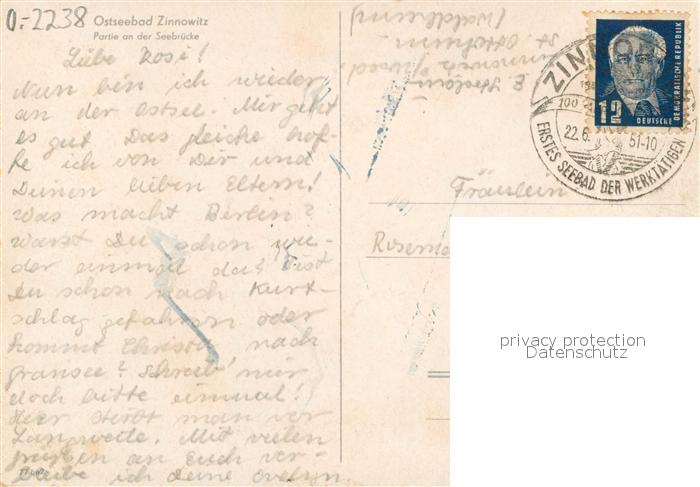 O.-2238
Ostseebad Zinnowitz
Partie an der Seebrücke
Liebe Rosi!
Nun bin ich wieder
an der Ostsee. Mir geht
es gut. Das gleiche hof-
fe ich von Dir und
Deinen lieben Eltern!
Was macht Berlin?
Warst Du schon wie-
der einmal da? Bist
Du schon nach Kurt-
schlag gefahren oder
kommt Christa nach
Gransee? Schreib' mir
doch bitte einmal!
Hier stirbt man vor
Langweile. Mit vielen
Grüßen an Euch ver-
bleibe ich Deine Evelyn.
ZINNO
100
22.6. 51-10
ERSTES SEEBAD DER WERKTÄTIGEN
12
DEUTSCHE
DEMOKRATISCHE REPUBLIK
Fräulein
privacy protection
Datenschutz